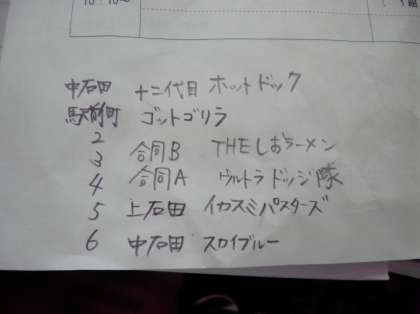 中石田 十二代目 ホットドック
駅前町 ゴットゴリラ
2
3 合同B THEしおラーメン
4 合同A ウルトラドッジ隊
5 上石田 イカスミパスターズ
6 中石田 スカイブルー